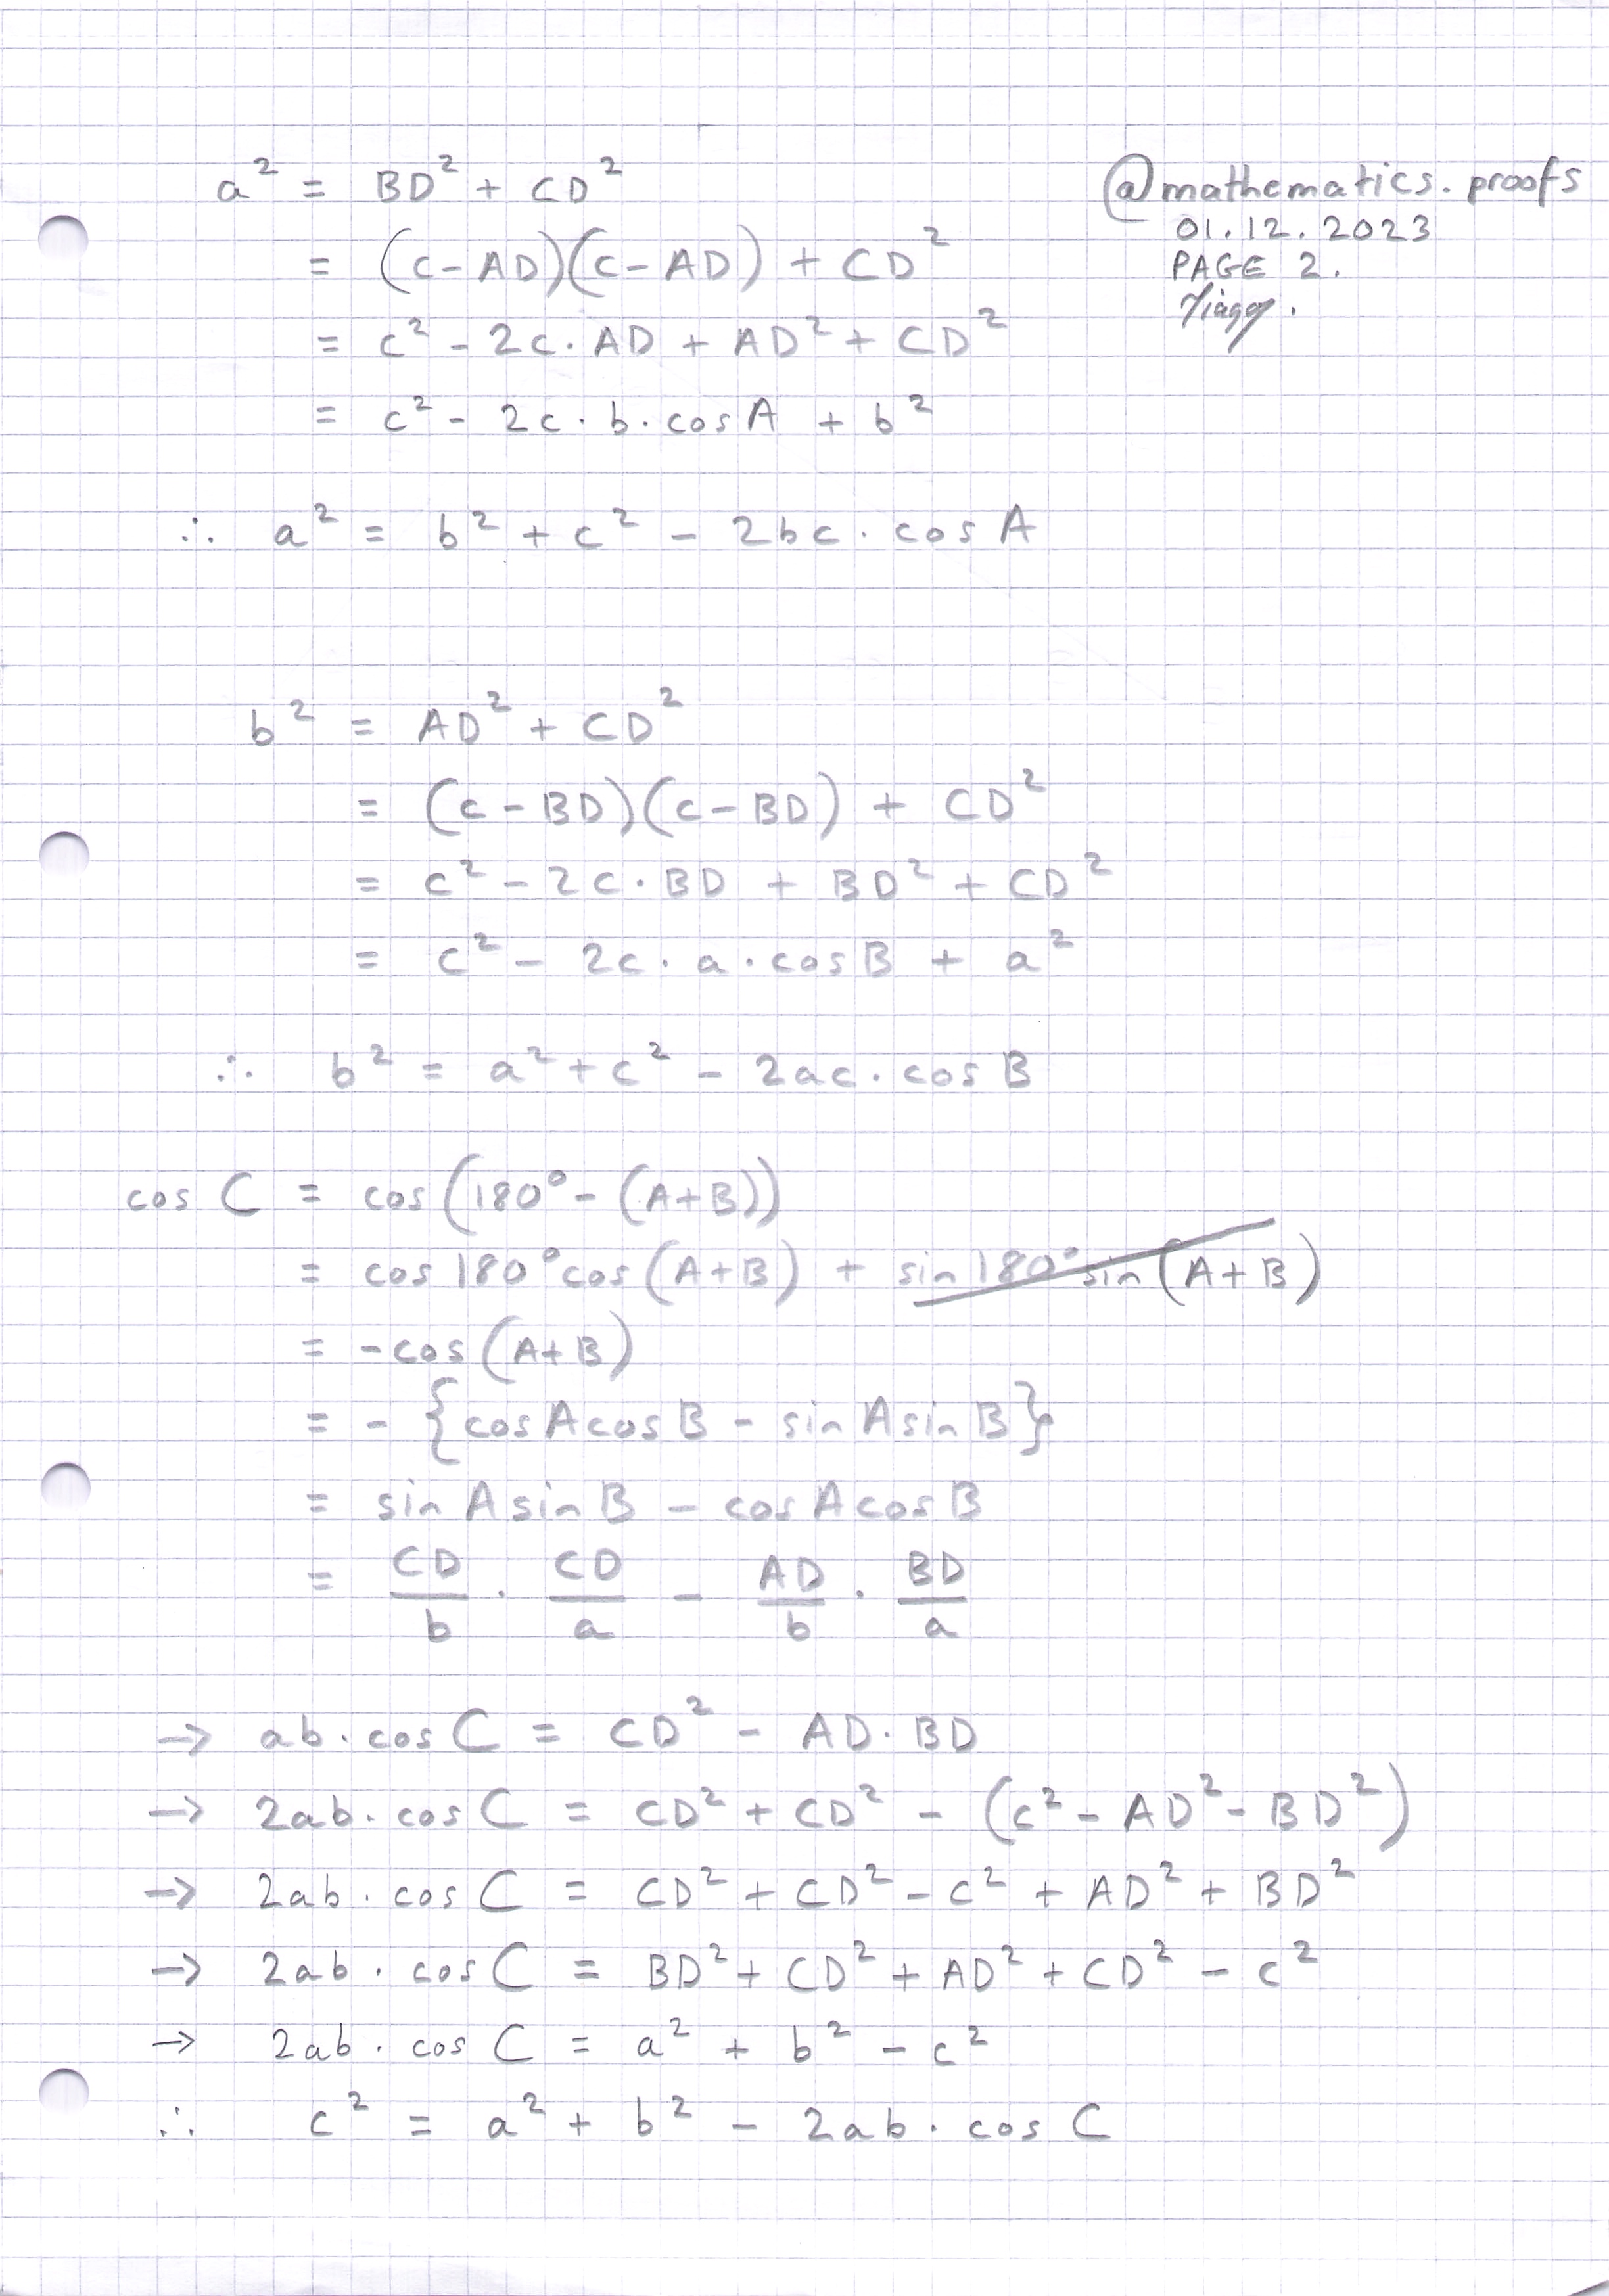 a² = BD² + CD²
= (c-AD)(c-AD) + CD²
= c² - 2c·AD + AD² + CD²
= c² - 2c·b·cosA + b²
∴ a² = b² + c² - 2bc·cosA
@mathematics.proofs
01.12.2023
PAGE 2.
b² = AD² + CD²
= (c-BD)(c-BD) + CD²
= c² - 2c·BD + BD² + CD²
= c² - 2c·a·cosB + a²
∴ b² = a² + c² - 2ac·cosB
cos C = cos(180° - (A+B))
= cos180°cos(A+B) + sin180°sin(A+B)
= -cos(A+B)
= -{cosAcosB - sinAsinB}
= sinAsinB - cosAcosB
= CD/b · CD/a - AD/b · BD/a
→ ab·cosC = CD² - AD·BD
→ 2ab·cosC = CD² + CD² - (c² - AD² - BD²)
→ 2ab·cosC = CD² + CD² - c² + AD² + BD²
→ 2ab·cosC = BD² + CD² + AD² + CD² - c²
→ 2ab·cosC = a² + b² - c²
∴ c² = a² + b² - 2ab·cosC